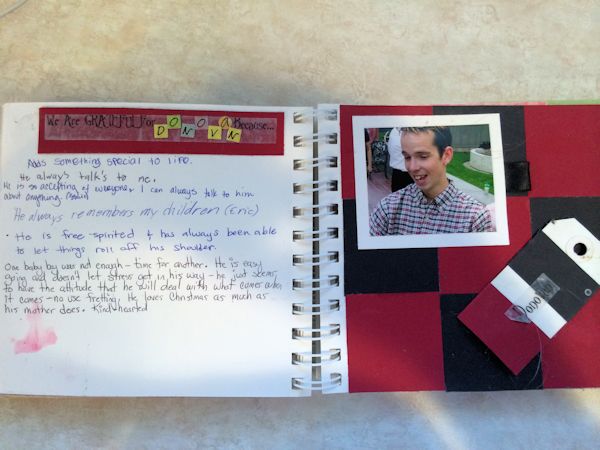 We Are GRATEFUL For DONOVAN Because...
Adds something special to life.
He always talk's to me.
He is so accepting of everyone, I can always talk to him
about anything.
He always remembers my children (Eric)
• He is free spirited & has always been able
to let things roll off his shoulder.
One baby boy was not enough - time for another. He is easy
going and doesn't let stress get in his way - he just seems
to have the attitude that he will deal with what comes when
it comes - no use fretting. He loves Christmas as much as
his mother does. Kind hearted